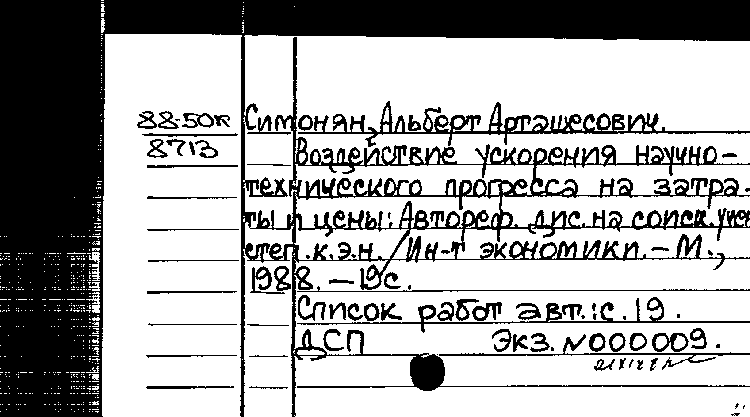 88-50к Симонян, Альберт Арташесович.
8713 Воздействие ускорения научно-
технического прогресса на затра-
ты и цены: Автореф. дис. на соиск. учен
степ. к.э.н. / Ин-т экономики. – М.,
1988. – 19 с.
Список работ авт.: с. 19.
ДСП Экз. N000009.